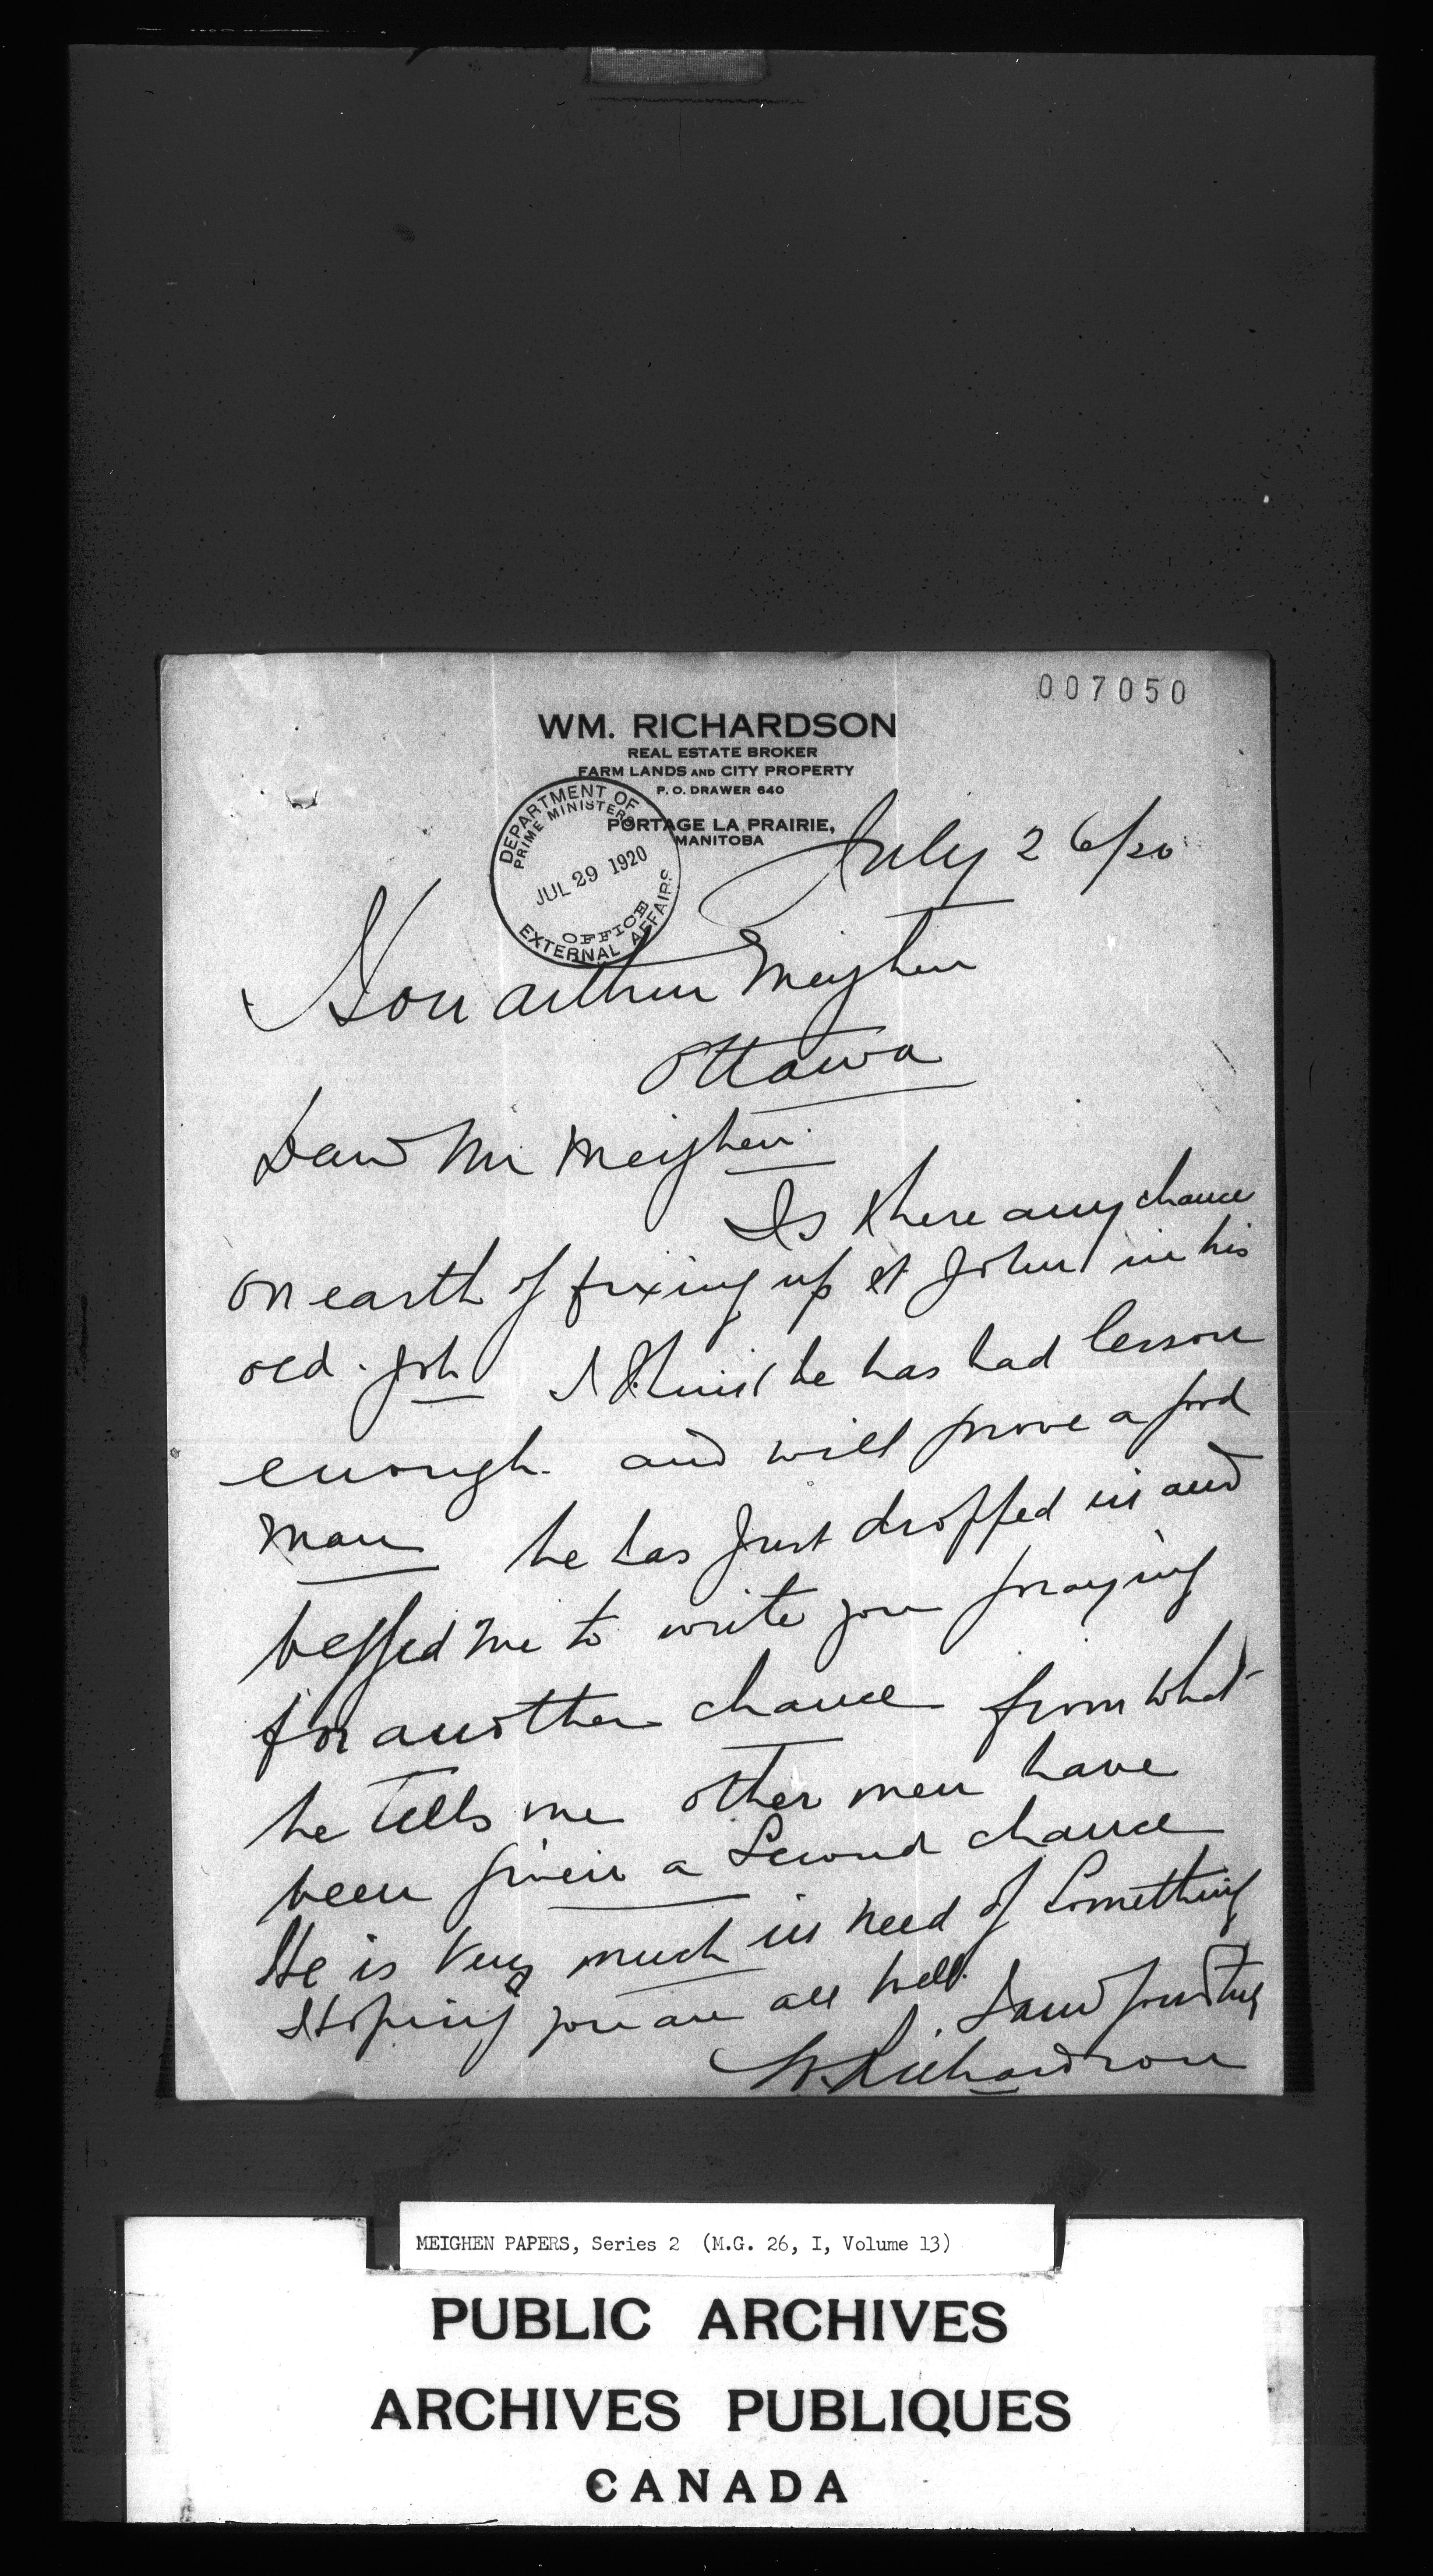 007050
WM. RICHARDSON
REAL ESTATE BROKER
FARM LANDS AND CITY PROPERTY
P. O. DRAWER 640
PORTAGE LA PRAIRIE,
MANITOBA
DEPARTMENT OF
PRIME MINISTERS
JUL 29 1920
OFFICE
EXTERNAL AFFAIRS
July 26/20
Hon Arthur Meighen
Ottawa
Dear Mr Meighen
Is there any chance
on earth of fixing up St John in his
old job I think he has had lesson
enough and will prove a good
man he has Just dropped in and
begged me to write you praying
for another chance from what
he tells me other men have
been given a Second chance
He is Very much in need of Something
Hoping you are all well.
yours truly
W. Richardson
MEIGHEN PAPERS, Series 2 (M.G. 26, I, Volume 13)
PUBLIC ARCHIVES
ARCHIVES PUBLIQUES
CANADA